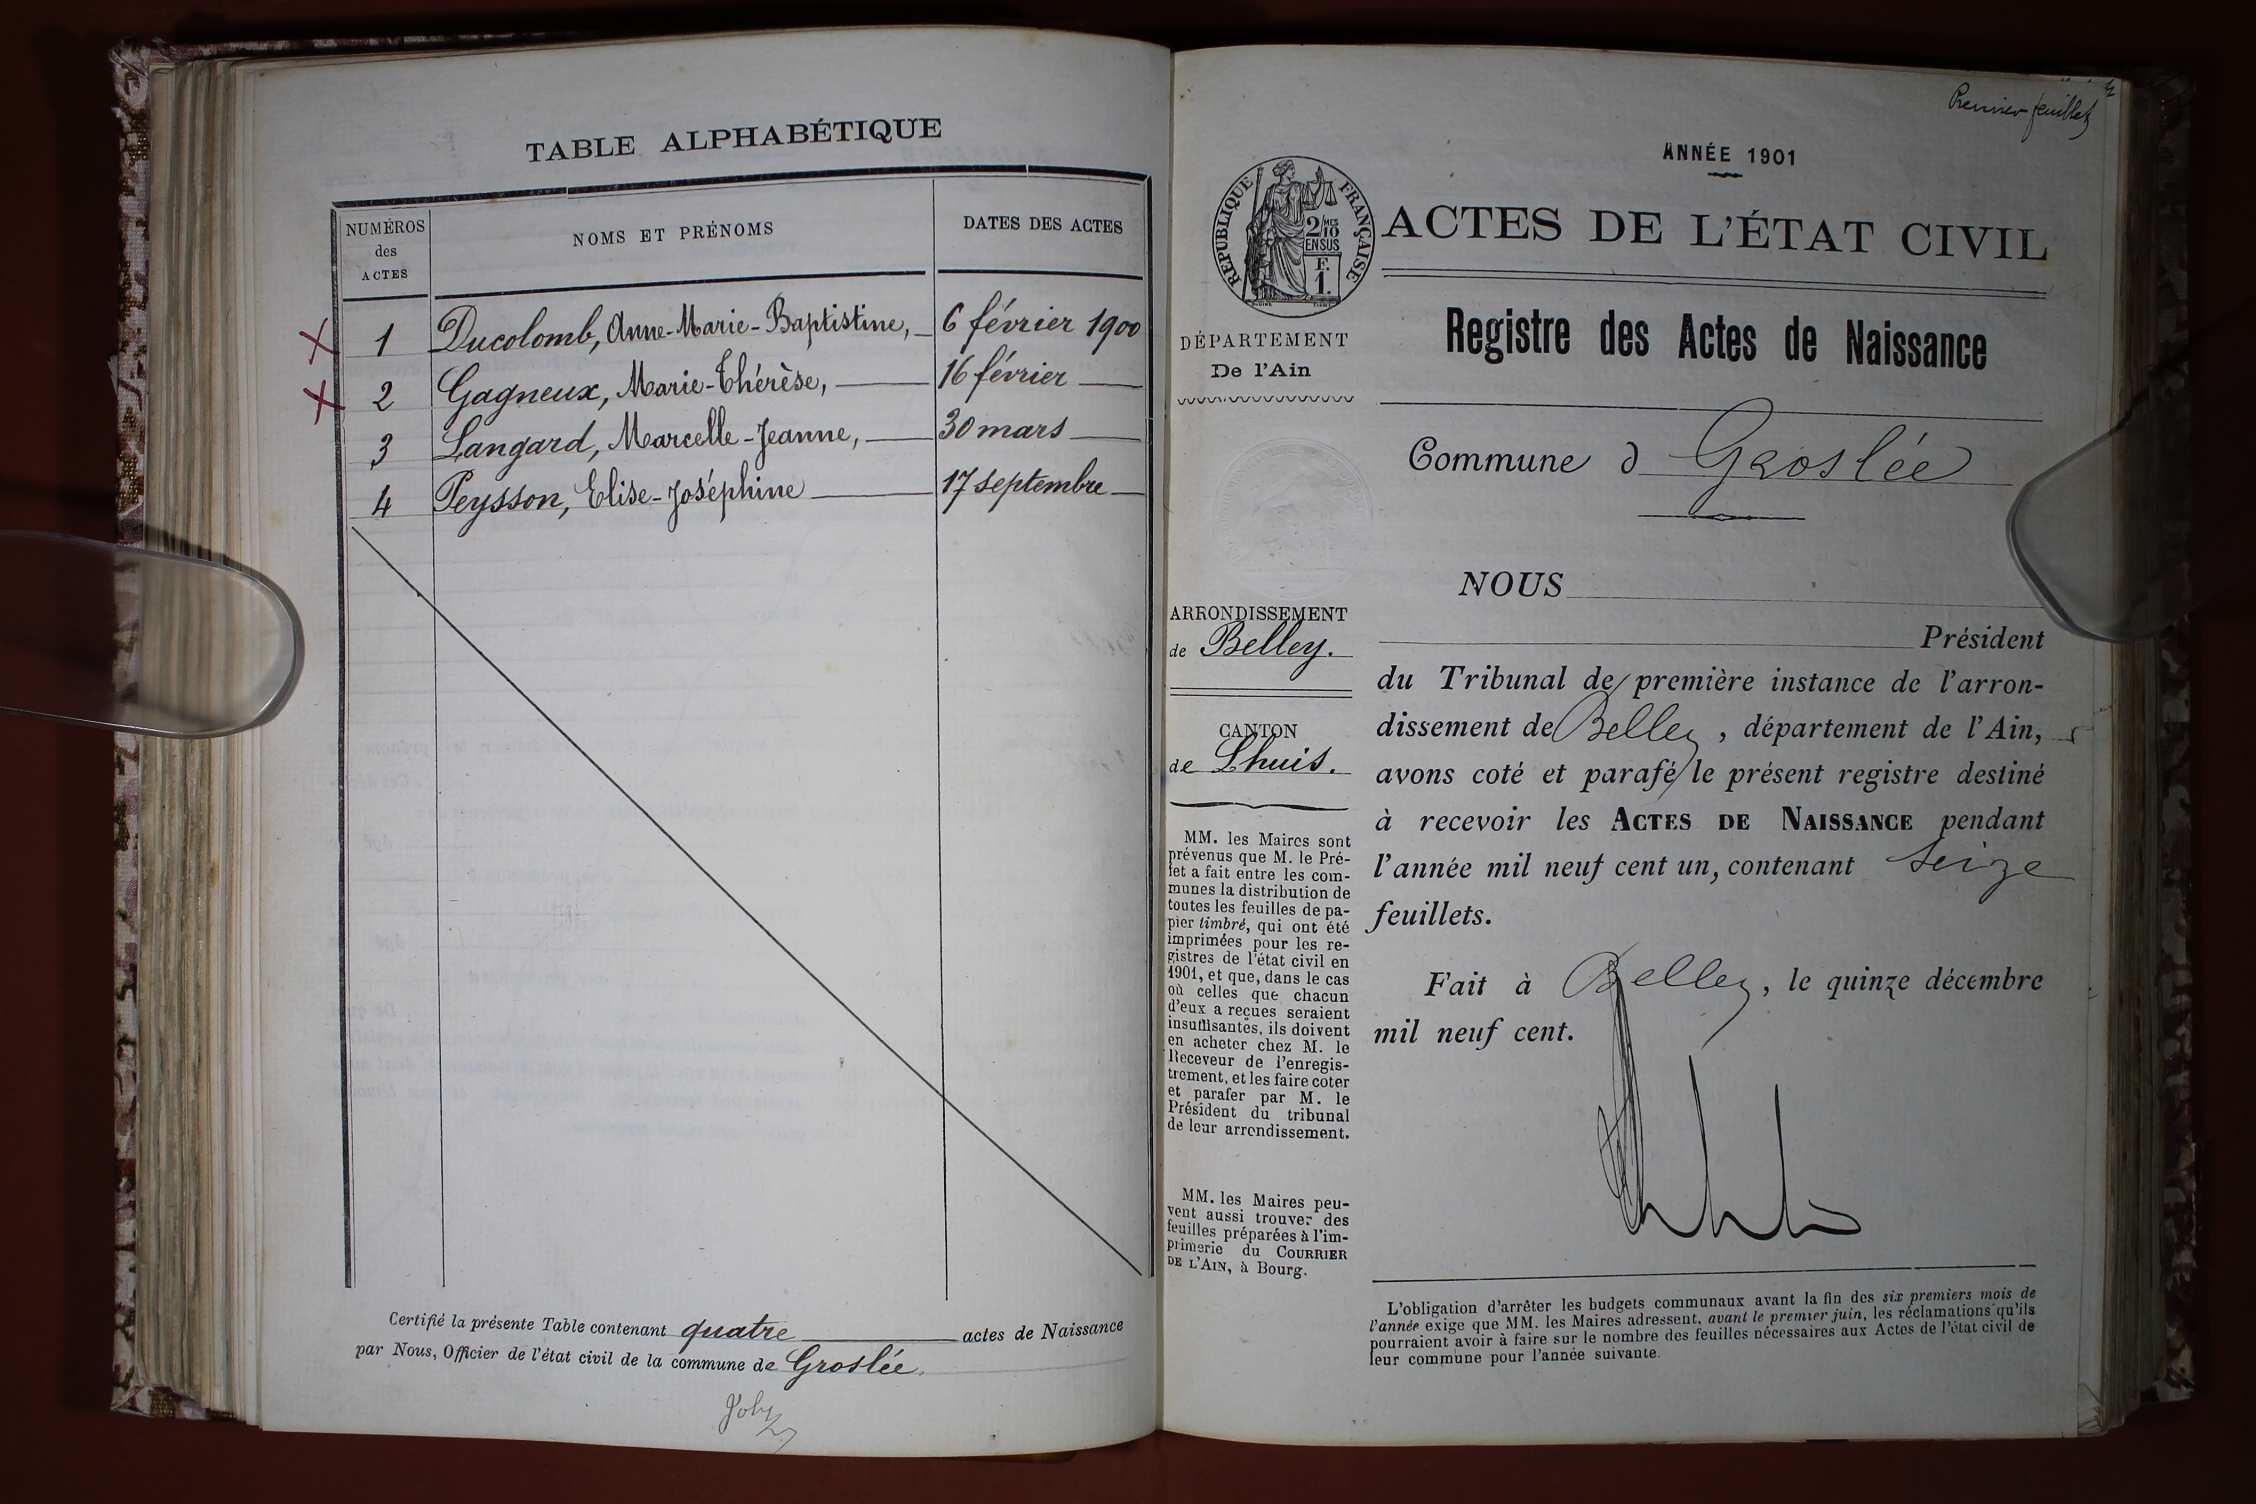 TABLE ALPHABÉTIQUE
NUMÉROS
des
ACTES
NOMS ET PRÉNOMS
DATES DES ACTES
1 Ducolomb, Anne-Marie-Baptistine, 6 février 1900
2 Gagneux, Marie-Thérèse, 16 février
3 Langard, Marcelle-Jeanne, 30 mars
4 Peysson, Elise-Joséphine 17 septembre
Certifié la présente Table contenant quatre actes de Naissance
par Nous, Officier de l'état civil de la commune de Groslée.
Joly
Premier feuillet
ANNÉE 1901
RÉPUBLIQUE FRANÇAISE
2 MES
10
EN SUS
F.
1.
ACTES DE L'ÉTAT CIVIL
DÉPARTEMENT
De l'Ain
Registre des Actes de Naissance
Commune d Groslée
ARRONDISSEMENT
de Belley.
CANTON
de Lhuis.
MM. les Maires sont
prévenus que M. le Pré-
fet a fait entre les com-
munes la distribution de
toutes les feuilles de pa-
pier timbré, qui ont été
imprimées pour les re-
gistres de l'état civil en
1901, et que, dans le cas
où celles que chacun
d'eux a reçues seraient
insuffisantes, ils doivent
en acheter chez M. le
Receveur de l'enregis-
trement, et les faire coter
et parafer par M. le
Président du tribunal
de leur arrondissement.
MM. les Maires peu-
vent aussi trouver des
feuilles préparées à l'im-
primerie du COURRIER
DE L'AIN, à Bourg.
NOUS
Président
du Tribunal de première instance de l'arron-
dissement de Belley, département de l'Ain,
avons coté et parafé le présent registre destiné
à recevoir les ACTES DE NAISSANCE pendant
l'année mil neuf cent un, contenant seize
feuillets.
Fait à Belley, le quinze décembre
mil neuf cent.
L'obligation d'arrêter les budgets communaux avant la fin des six premiers mois de
l'année exige que MM. les Maires adressent, avant le premier juin, les réclamations qu'ils
pourraient avoir à faire sur le nombre des feuilles nécessaires aux Actes de l'état civil de
leur commune pour l'année suivante.